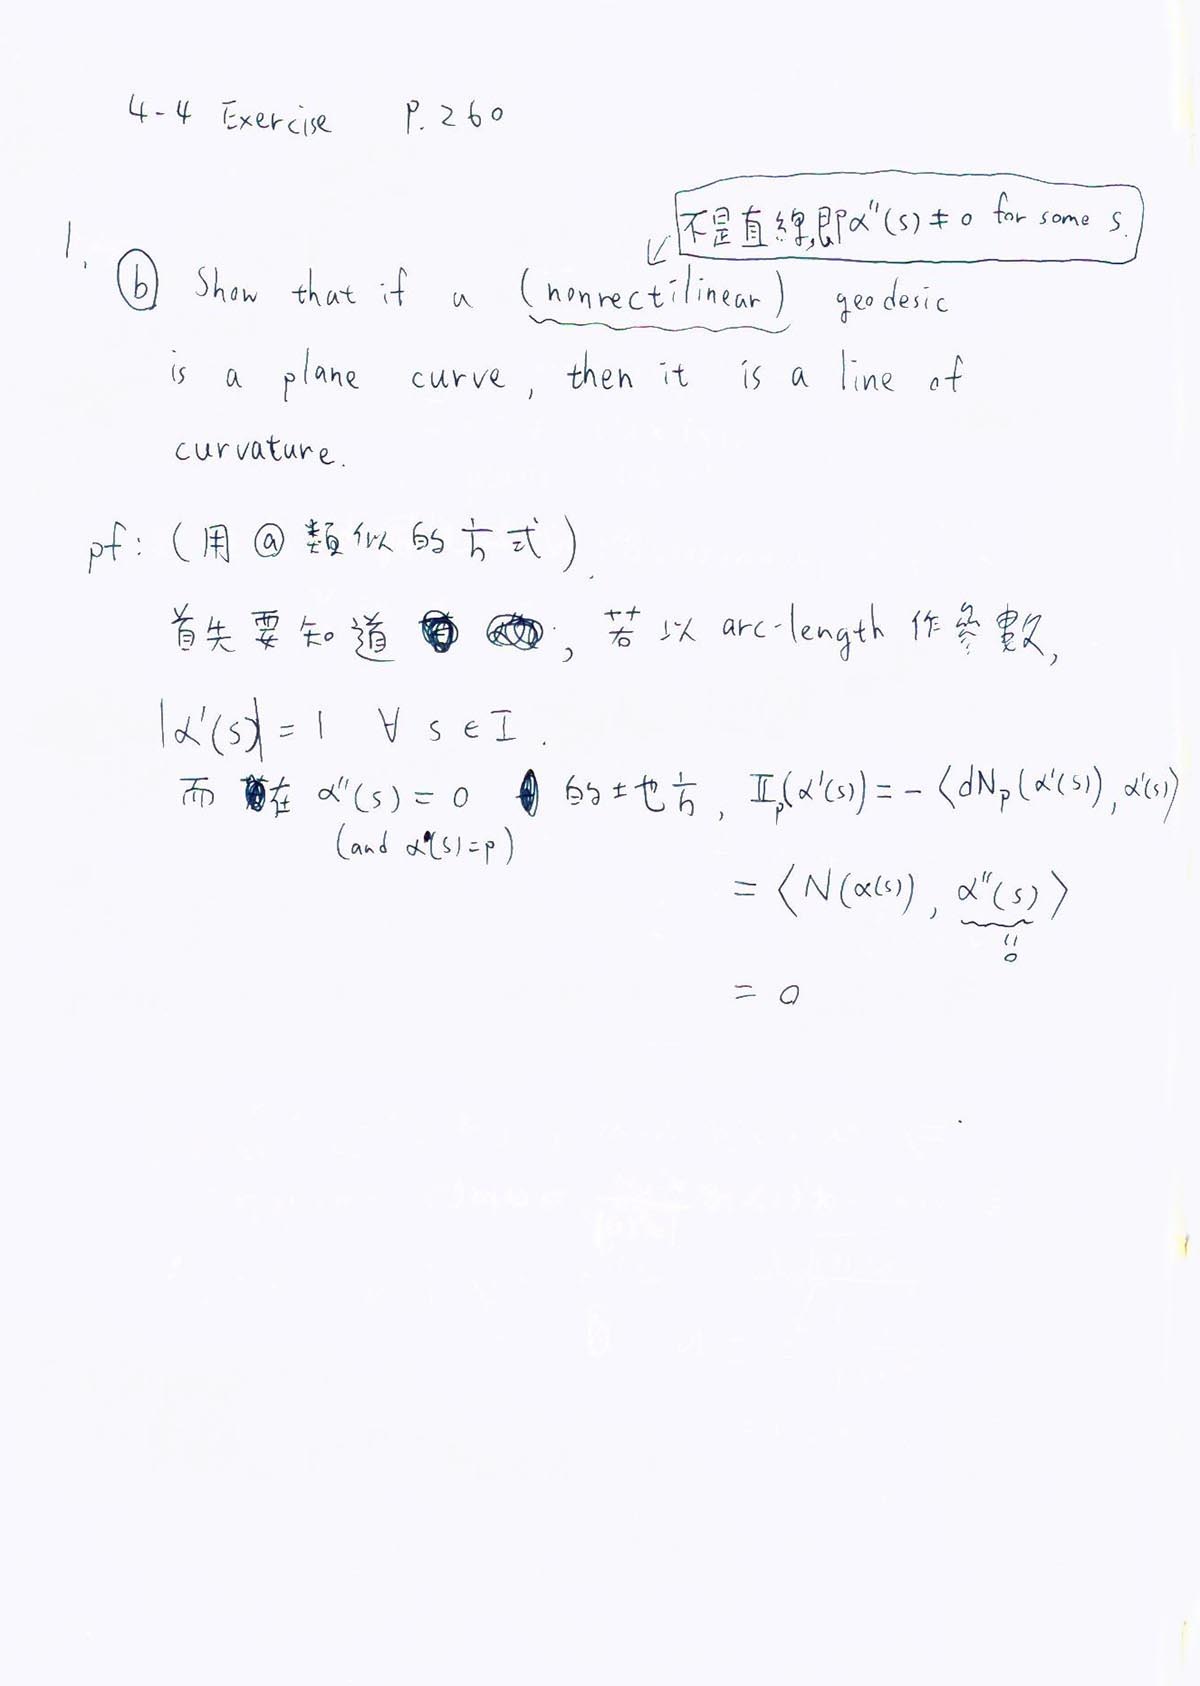 4-4 Exercise P. 260
不是直線,即α''(s) ≠ 0 for some s.
1. ⓑ Show that if a (nonrectilinear) geodesic
is a plane curve, then it is a line of
curvature.
pf: (用ⓐ類似的方式).
首先要知道 ; 若以 arc-length 作參數,
|α'(s)| = 1 ∀ s ∈ I.
而在 α''(s) = 0 的地方, Ⅱp(α'(s)) = - ⟨dNp(α'(s)), α'(s)⟩
(and α(s)=p)
= ⟨N(α(s)), α''(s)⟩
"
0
= 0